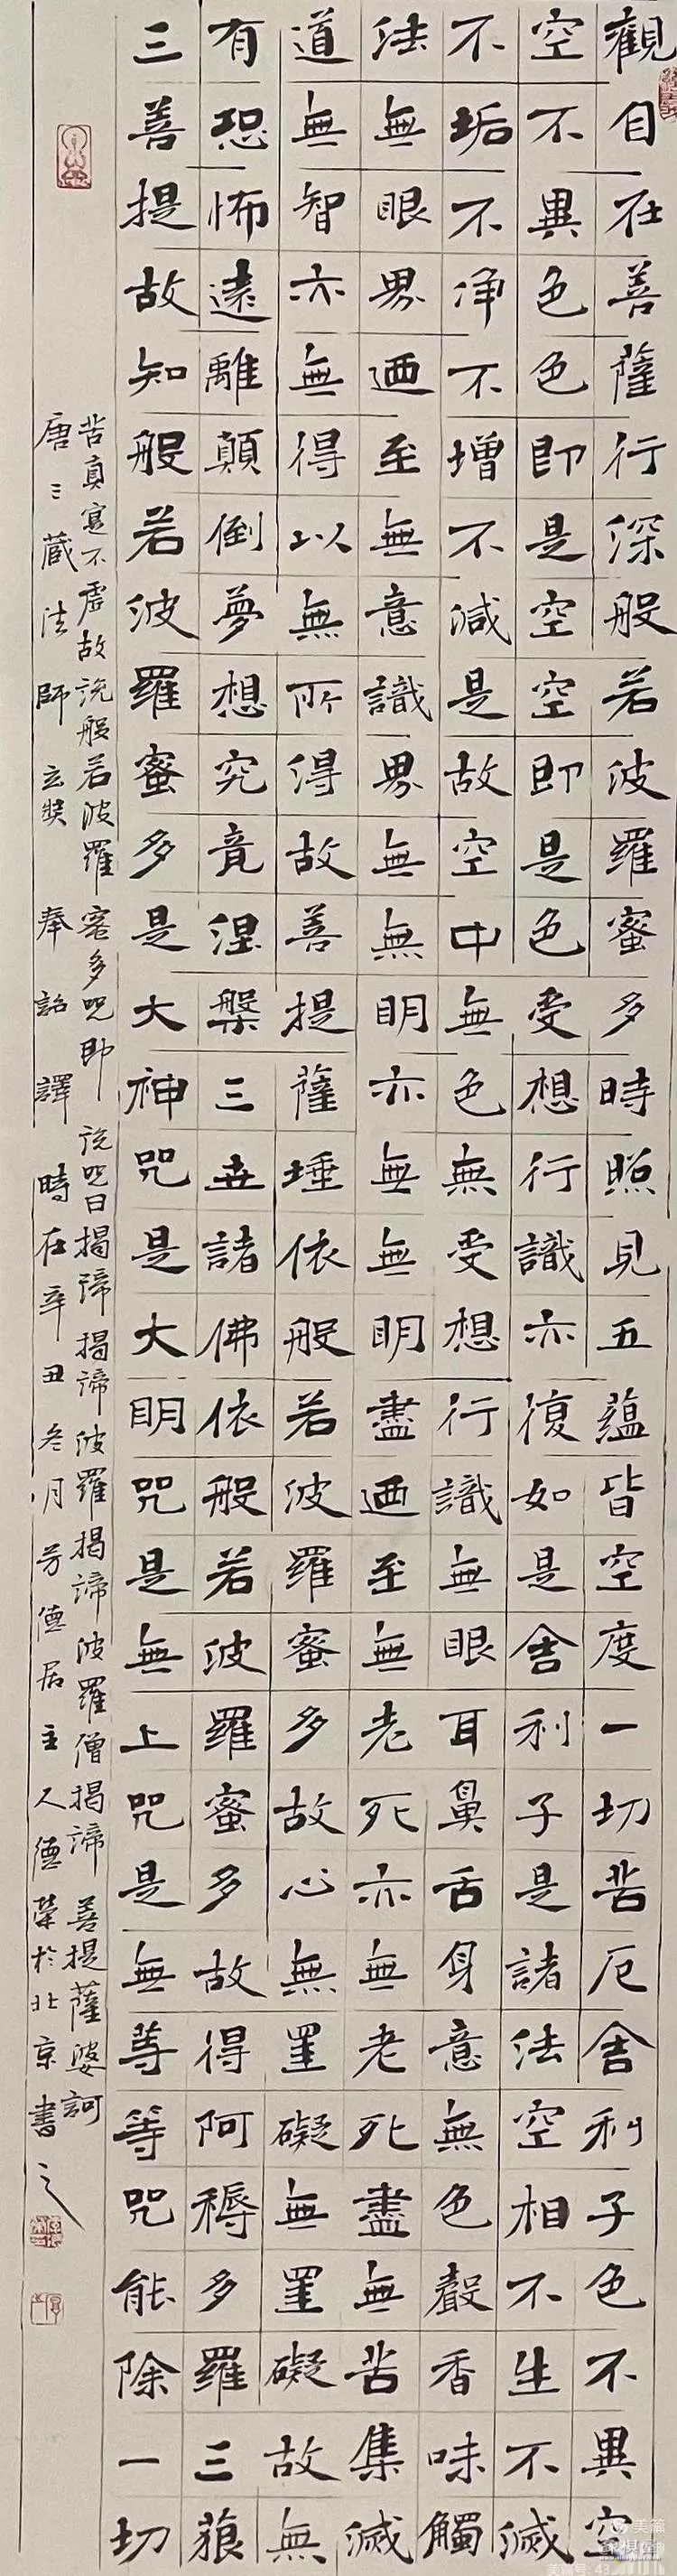 觀自在菩薩行深般若波羅蜜多時照見五蘊皆空度一切苦厄舍利子色不異空
空不異色色即是空空即是色受想行識亦復如是舍利子是諸法空相不生不滅
不垢不淨不增不減是故空中無色無受想行識無眼耳鼻舌身意無色聲香味觸
法無眼界迺至無意識界無無明亦無無明盡迺至無老死亦無老死盡無苦集滅
道無智亦無得以無所得故菩提薩埵依般若波羅蜜多故心無罣礙無罣礙故無
有恐怖遠離顛倒夢想究竟涅槃三世諸佛依般若波羅蜜多故得阿耨多羅三藐
三菩提故知般若波羅蜜多是大神咒是大明咒是無上咒是無等等咒能除一切
苦真實不虛故說般若波羅蜜多咒即說咒曰揭諦揭諦波羅揭諦波羅僧揭諦菩提薩婆訶
唐三藏法師玄奘奉詔譯時在辛丑冬月芳德居主人德荣於北京書之
美篇